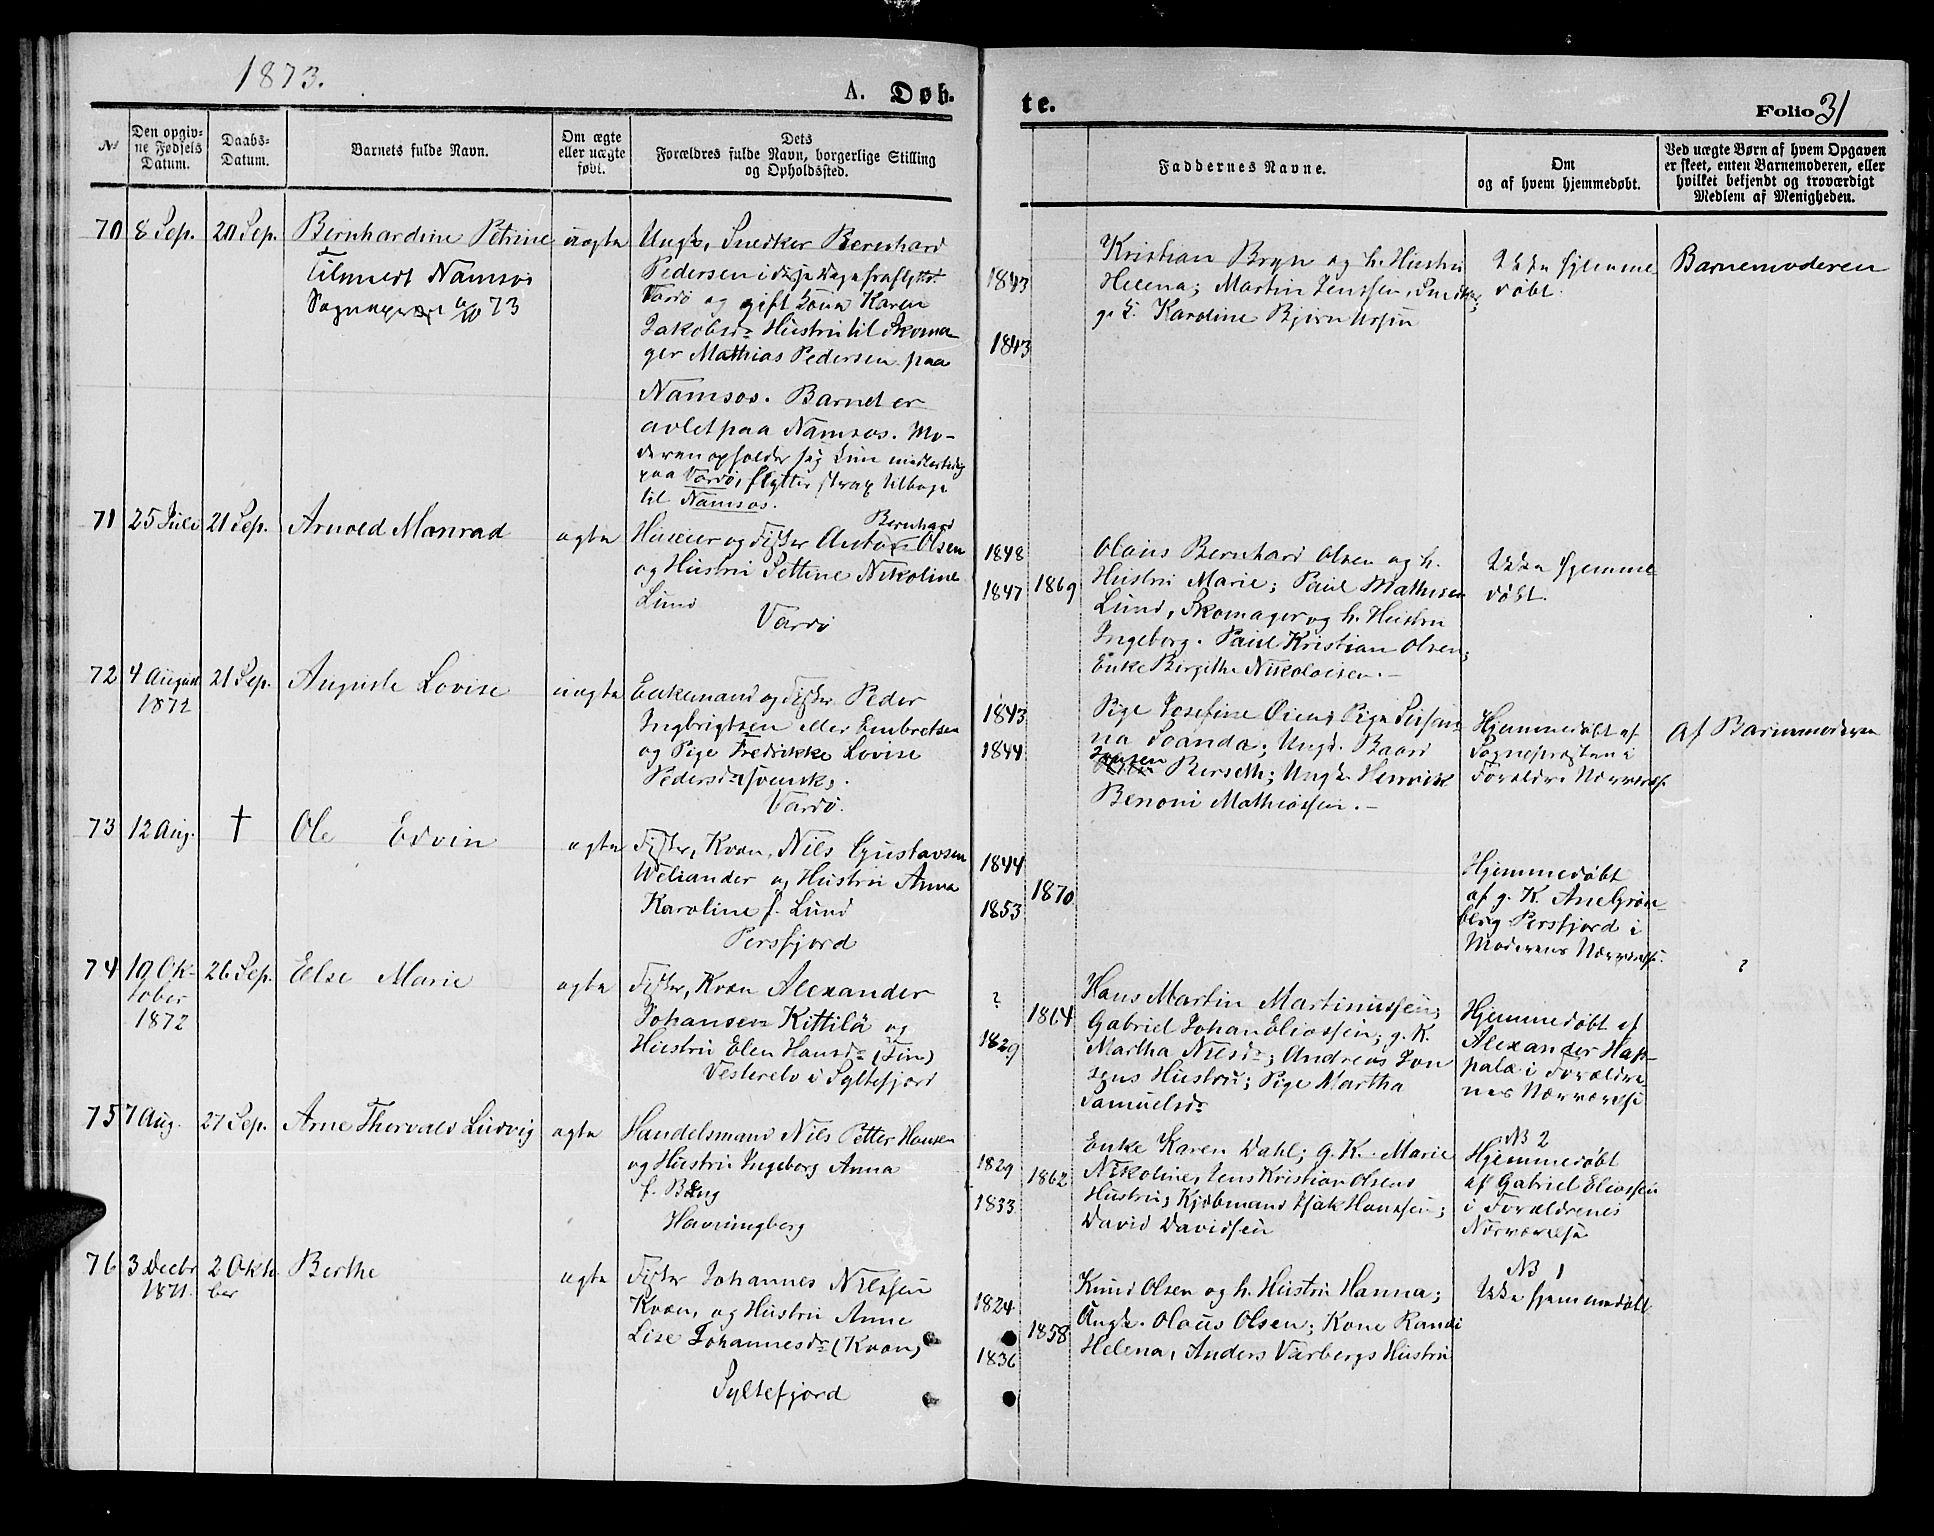 1873.
A. Døb-
te.
Folio 31
No
Den opgiv-
ne Fødsels
Datum.
Daabs-
Datum.
Barnets fulde Navn.
Om ægte
eller uægte
født.
Dets
Forældres fulde Navn, borgerlige Stilling
og Opholdssted.
Faddernes Navne.
Om
og af hvem hjemmedøbt.
Ved uægte Børn af hvem Opgaven
er skeet, enten Barnemoderen, eller
hvilket bekjendt og troværdigt
Medlem af Menigheden.
70 8 Sep. 20 Sep. Bernhardine Petrine uægte
Tilmeldt Namsos
73
Ungk. Snedker Bernhard
Pedersen i disse Dage fraflyttet
Vardø og gift Kone Karen
Jakobsdr Hustru til Skoma-
ger Mathias Pedersen paa
Namsos. Barnet er
avlet paa Namsos. Mo-
deren opholder sig kun midlertidig
paa Vardø, flytter strax tilbage
til Namsos.
1843
1843
Kristian Bryn og h. Hustru
Helena; Martin Jenssen, Snedker;
g. K. Karoline Bjørnussen
Ikke hjemme
døbt.
Barnemoderen
71 25 Juli 21 Sep. Arnold Monrad ægte
Bernhard
Huseier og Fisker Anton Olsen
og Hustru Pettine Nikoline
Lund
Vardø
1848
1847 1869
Olaus Bernhard Olsen og h.
Hustru Marie; Paul Mathisen
Lund, Skomager og h. Hustru
Ingeborg. Paul Kristian Olsen;
Enke Birgithe Nikolaisen.-
Ikke hjemme-
døbt.
72 4 August 1872 21 Sep. Auguste Lovise uægte
Enkemand og Fisker Peder
Ingbrigtsen eller Embretsen
og Pige Fredrikke Lovise
Pedersdr svensk,
Vardø.
1843
1844
Pige Josefine Øien; Pige Susan-
na Scanda; Ungk. Baard
Jensen
Berseth; Ungk. Henrik
Benoni Mathiassen.-
Hjemmedøbt af
Sognepræsten i
Forældr. Nærværelse.
Af Barnmoderen
73 12 Aug. † Ole Edvin ægte
Fisker, Kvæn, Nils Gustavsen
Weliander og Hustru Anna
Karoline f. Lund
Persfjord
1844
1853 1870
Hjemmedøbt
af g. K. Ane Grøn-
berg Persfjord i
Moderens Nærværelse.
?
74 19 Ok-
tober
1872
26 Sep. Else Marie ægte
Fisker, Kvæn Alexander
Johansen Kittilä og
Hustru Elen Hansdr (Fin)
Vesterelv i Syltefjord
?
1829 1864
Hans Martin Martinussen;
Gabriel Johan Eliassen; g. K.
Martha Nilsdr; Andreas Jon-
sens Hustru; Pige Martha
Samuelsdr
Hjemmedøbt af
Alexander Hap-
pala i Forældre-
nes Nærværelse
75 7 Aug. 27 Sep. Arne Thorvald Ludvig ægte
Handelsmand Nils Petter Hansen
og Hustru Ingeborg Anna
f. Bang
Havningberg
1829
1833 1862
Enke Karen Dahl; g. K. Marie
Nikoline, Jens Kristian Olsens
Hustru; Kjøbmand Isak Hanssen;
David Davidsen
NB 2
Hjemmedøbt
af Gabriel Eliassen
i Forældrenes
Nærværelse
76 3 Decbr
1871.
2 Okto-
ber
Berthe ægte
Fisker Johannes Nilssen
Kvæn, og Hustru Anne
Lise Johannesdr (Kvæn)
Syltefjord
1824
1836 1858
Knud Olsen og h. Hustru Hanna;
Ungk. Olaus Olsen; Kone Randi
Helena, Anders Varbergs Hustru
NB 1
Ikke hjemmedøbt